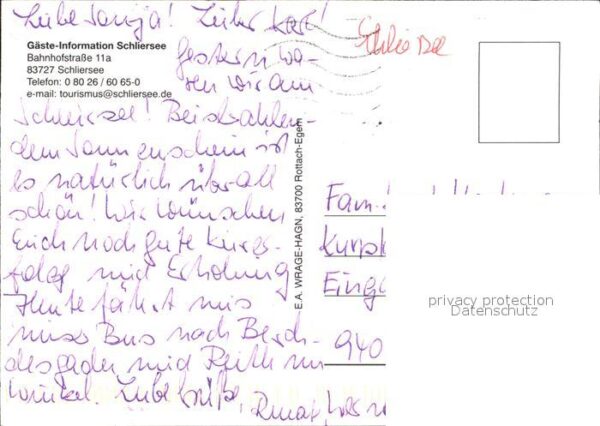 Liebe Tanja! Lieber Karl!
Gäste-Information Schliersee
Bahnhofstraße 11a
83727 Schliersee
Telefon: 0 80 26 / 60 65-0
e-mail: tourismus@schliersee.de
Schliersee
gestern wa-
ren wir am
Schliersee! Bei strahlen-
dem Sonnenschein ist
es natürlich überall
schön! Wir wünschen
Euch noch gute Kurer-
folg und Erholung
Heute fährt uns
unser Bus nach Berch-
desgaden und Reith im
Winkel. Liebe Grüße,
E.A. WRAGE-HAGN, 83700 Rottach-Egern
Fam.
Kurpl
Einga
940
privacy protection
Datenschutz